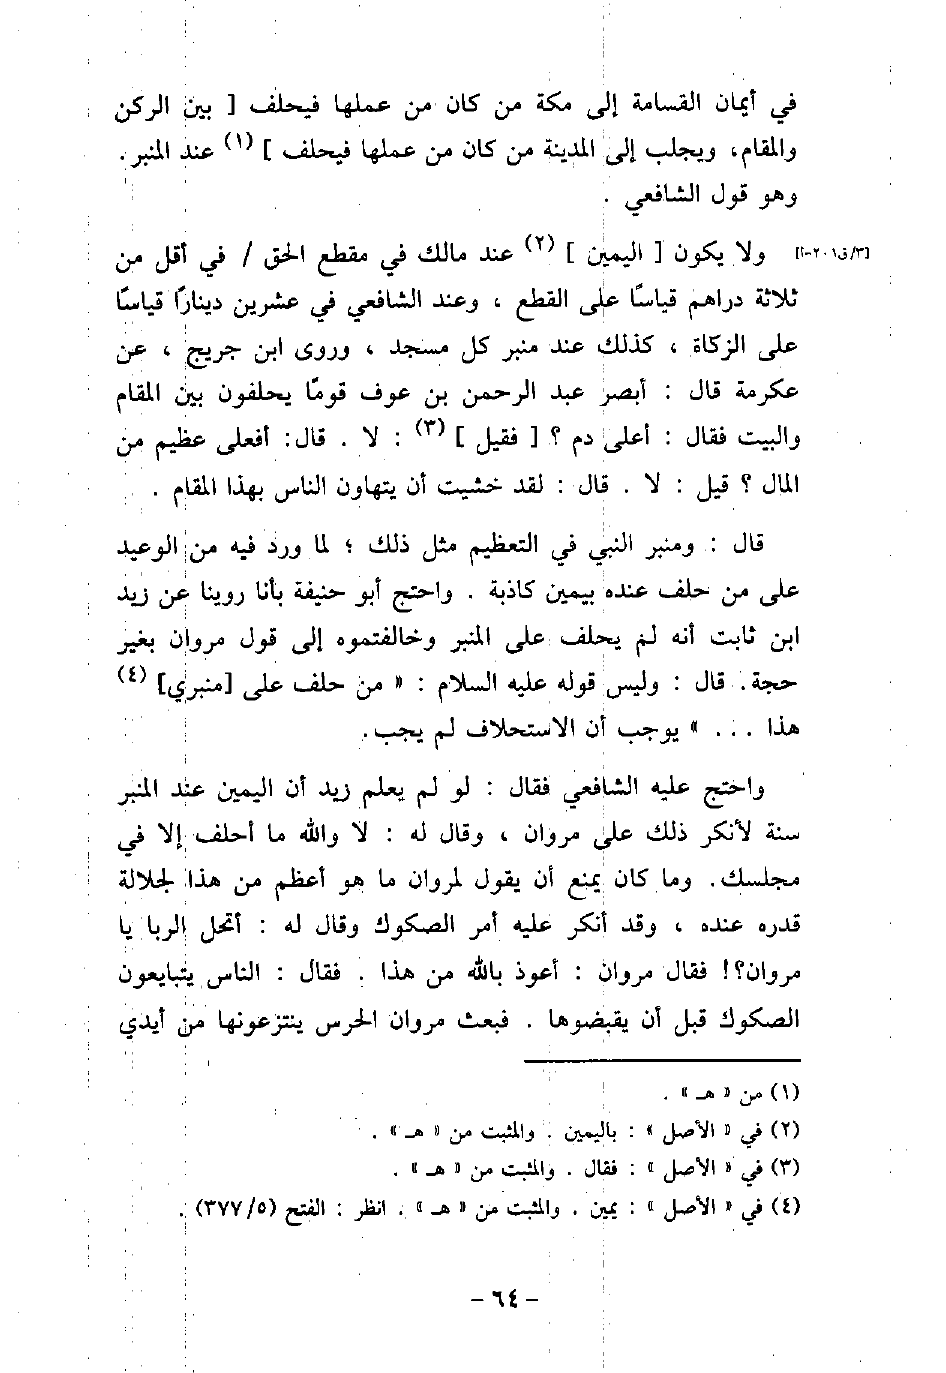 في أيمان القسامة إلى مكة من كان من عملها فيحلف [ بين الركن
والمقام، ويجلب إلى المدينة من كان من عملها فيحلف ] (١) عند المنبر.
وهو قول الشافعي .
ولا يكون [ اليمين ] (٢) عند مالك في مقطع الحق / في أقل من
[٣/ق٢٠١-أ]
ثلاثة دراهم قياسًا على القطع ، وعند الشافعي في عشرين دينارًا قياسًا
على الزكاة ، كذلك عند منبر كل مسجد ، وروى ابن جريج ، عن
عكرمة قال : أبصر عبد الرحمن بن عوف قومًا يحلفون بين المقام
والبيت فقال : أعلى دم ؟ [ فقيل ] (٣) : لا . قال: أفعلى عظيم من
المال ؟ قيل : لا . قال : لقد خشيت أن يتهاون الناس بهذا المقام .
قال : ومنبر النبي في التعظيم مثل ذلك ؛ لما ورد فيه من الوعيد
على من حلف عنده بيمين كاذبة . واحتج أبو حنيفة بأنا روينا عن زيد
ابن ثابت أنه لم يحلف على المنبر وخالفتموه إلى قول مروان بغير
حجة. قال : وليس قوله عليه السلام : « من حلف على [منبري] (٤)
هذا ... » يوجب أن الاستحلاف لم يجب.
واحتج عليه الشافعي فقال : لو لم يعلم زيد أن اليمين عند المنبر
سنة لأنكر ذلك على مروان ، وقال له : لا والله ما أحلف إلا في
مجلسك. وما كان يمنع أن يقول لمروان ما هو أعظم من هذا لجلالة
قدره عنده ، وقد أنكر عليه أمر الصكوك وقال له : أتحل الربا يا
مروان؟! فقال مروان : أعوذ بالله من هذا . فقال : الناس يتبايعون
الصكوك قبل أن يقبضوها . فبعث مروان الحرس ينتزعونها من أيدي
(١) من « هـ » .
(٢) في « الأصل » : باليمين . والمثبت من « هـ » .
(٣) في « الأصل » : فقال . والمثبت من « هـ » .
(٤) في « الأصل » : يمين . والمثبت من « هـ » . انظر : الفتح (٥/ ٣٧٧) .
- ٦٤ -